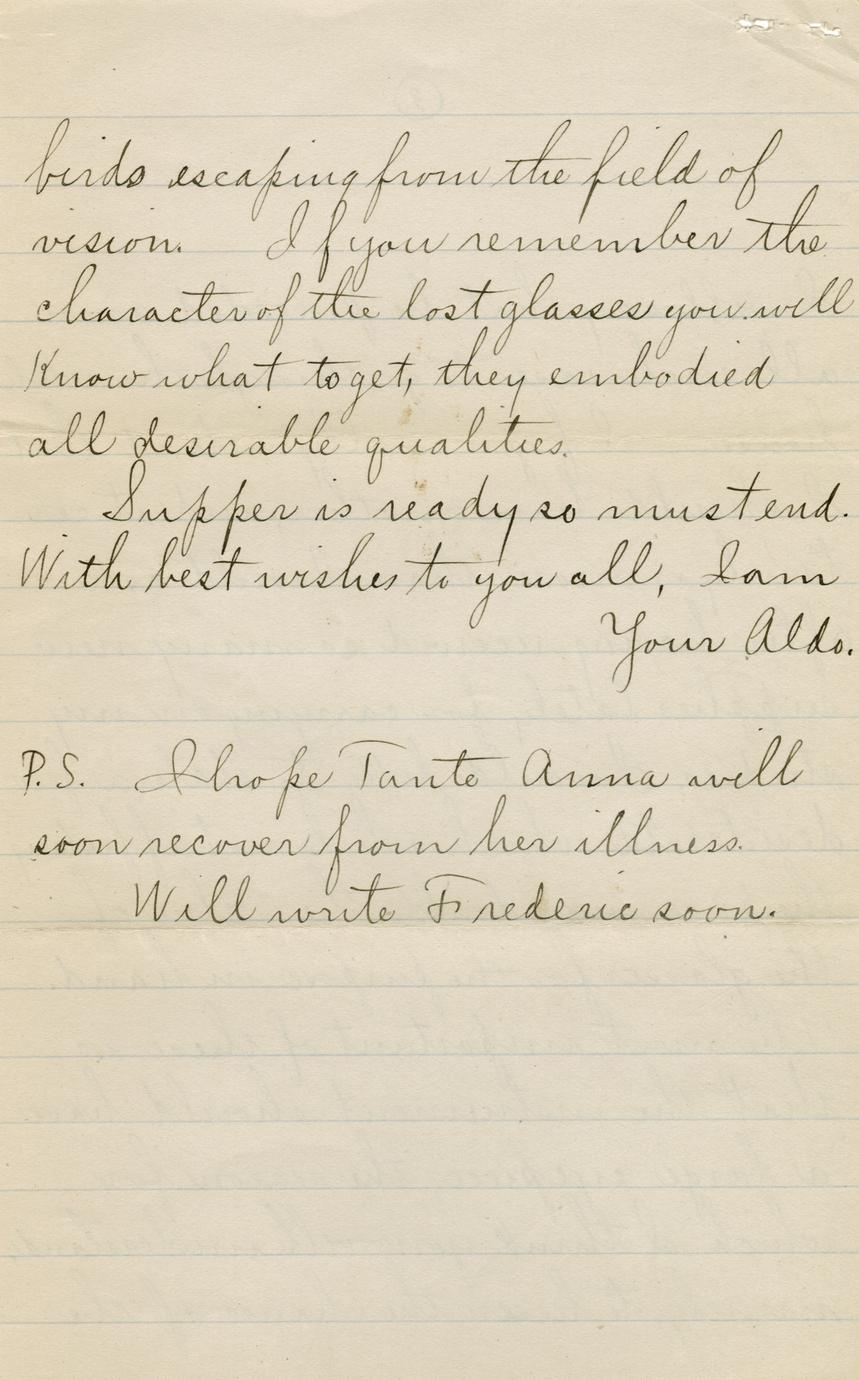 birds escaping from the field of
vision. If you remember the
character of the lost glasses you will
know what to get, they embodied
all desirable qualities.
Supper is ready so must end.
With best wishes to you all, I am
Your Aldo.
P.S. I hope Tante Anna will
soon recover from her illness.
Will write Frederic soon.